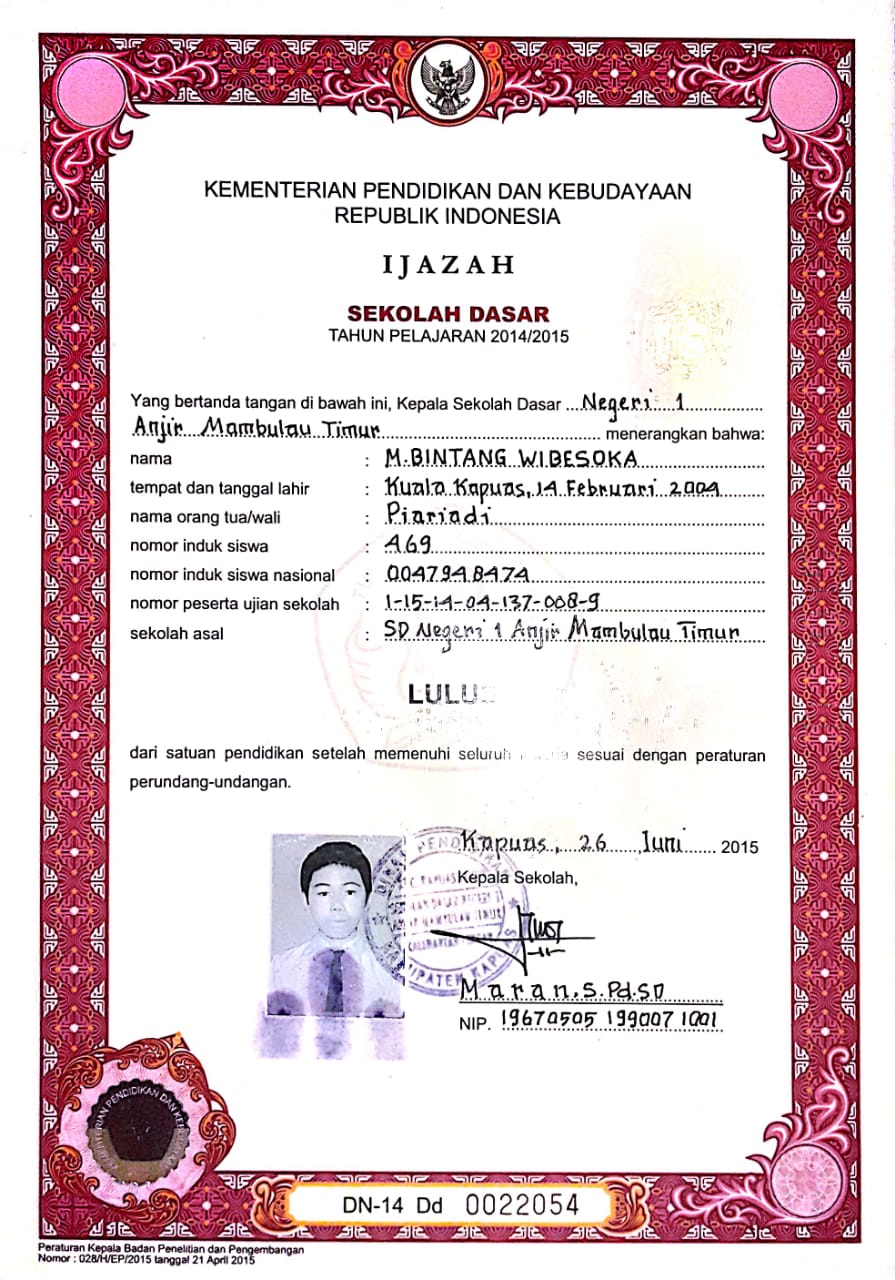 KEMENTERIAN PENDIDIKAN DAN KEBUDAYAAN
REPUBLIK INDONESIA
IJAZAH
SEKOLAH DASAR
TAHUN PELAJARAN 2014/2015
Yang bertanda tangan di bawah ini, Kepala Sekolah Dasar Negeri 1
Anjir Mambulau Timur menerangkan bahwa:
nama : M.BINTANG WIBESOKA
tempat dan tanggal lahir : Kuala Kapuas, 14 Februari 2004
nama orang tua/wali : Piariadi
nomor induk siswa : 469
nomor induk siswa nasional : 0047948474
nomor peserta ujian sekolah : 1-15-14-04-137-008-9
sekolah asal : SD Negeri 1 Anjir Mambulau Timur
LULUS
dari satuan pendidikan setelah memenuhi seluruh sesuai dengan peraturan
perundang-undangan.
Kapuas, 26 Juni 2015
Kepala Sekolah,
Maran, S.Pd.SD
NIP. 19670505 199007 1001
DN-14 Dd 0022054
Peraturan Kepala Badan Penelitian dan Pengembangan
Nomor : 028/H/EP/2015 tanggal 21 April 2015